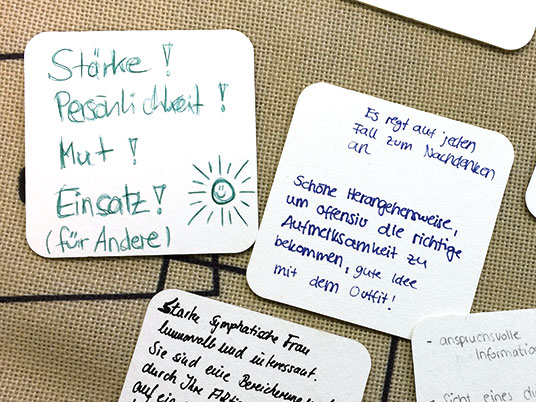 Stärke !
Persönlichkeit !
Mut !
Einsatz !
(für Andere)
Es regt auf jeden
Fall zum Nachdenken
an
Schöne Herangehensweise,
um offensiv die richtige
Aufmerksamkeit zu
bekommen, gute Idee
mit dem Outfit!
Starke symphatische Frau
humorvoll und interessant.
Sie sind eine Bereicherung
durch Ihre
auf
- anspruchsvolle
Information
- Sicht eines